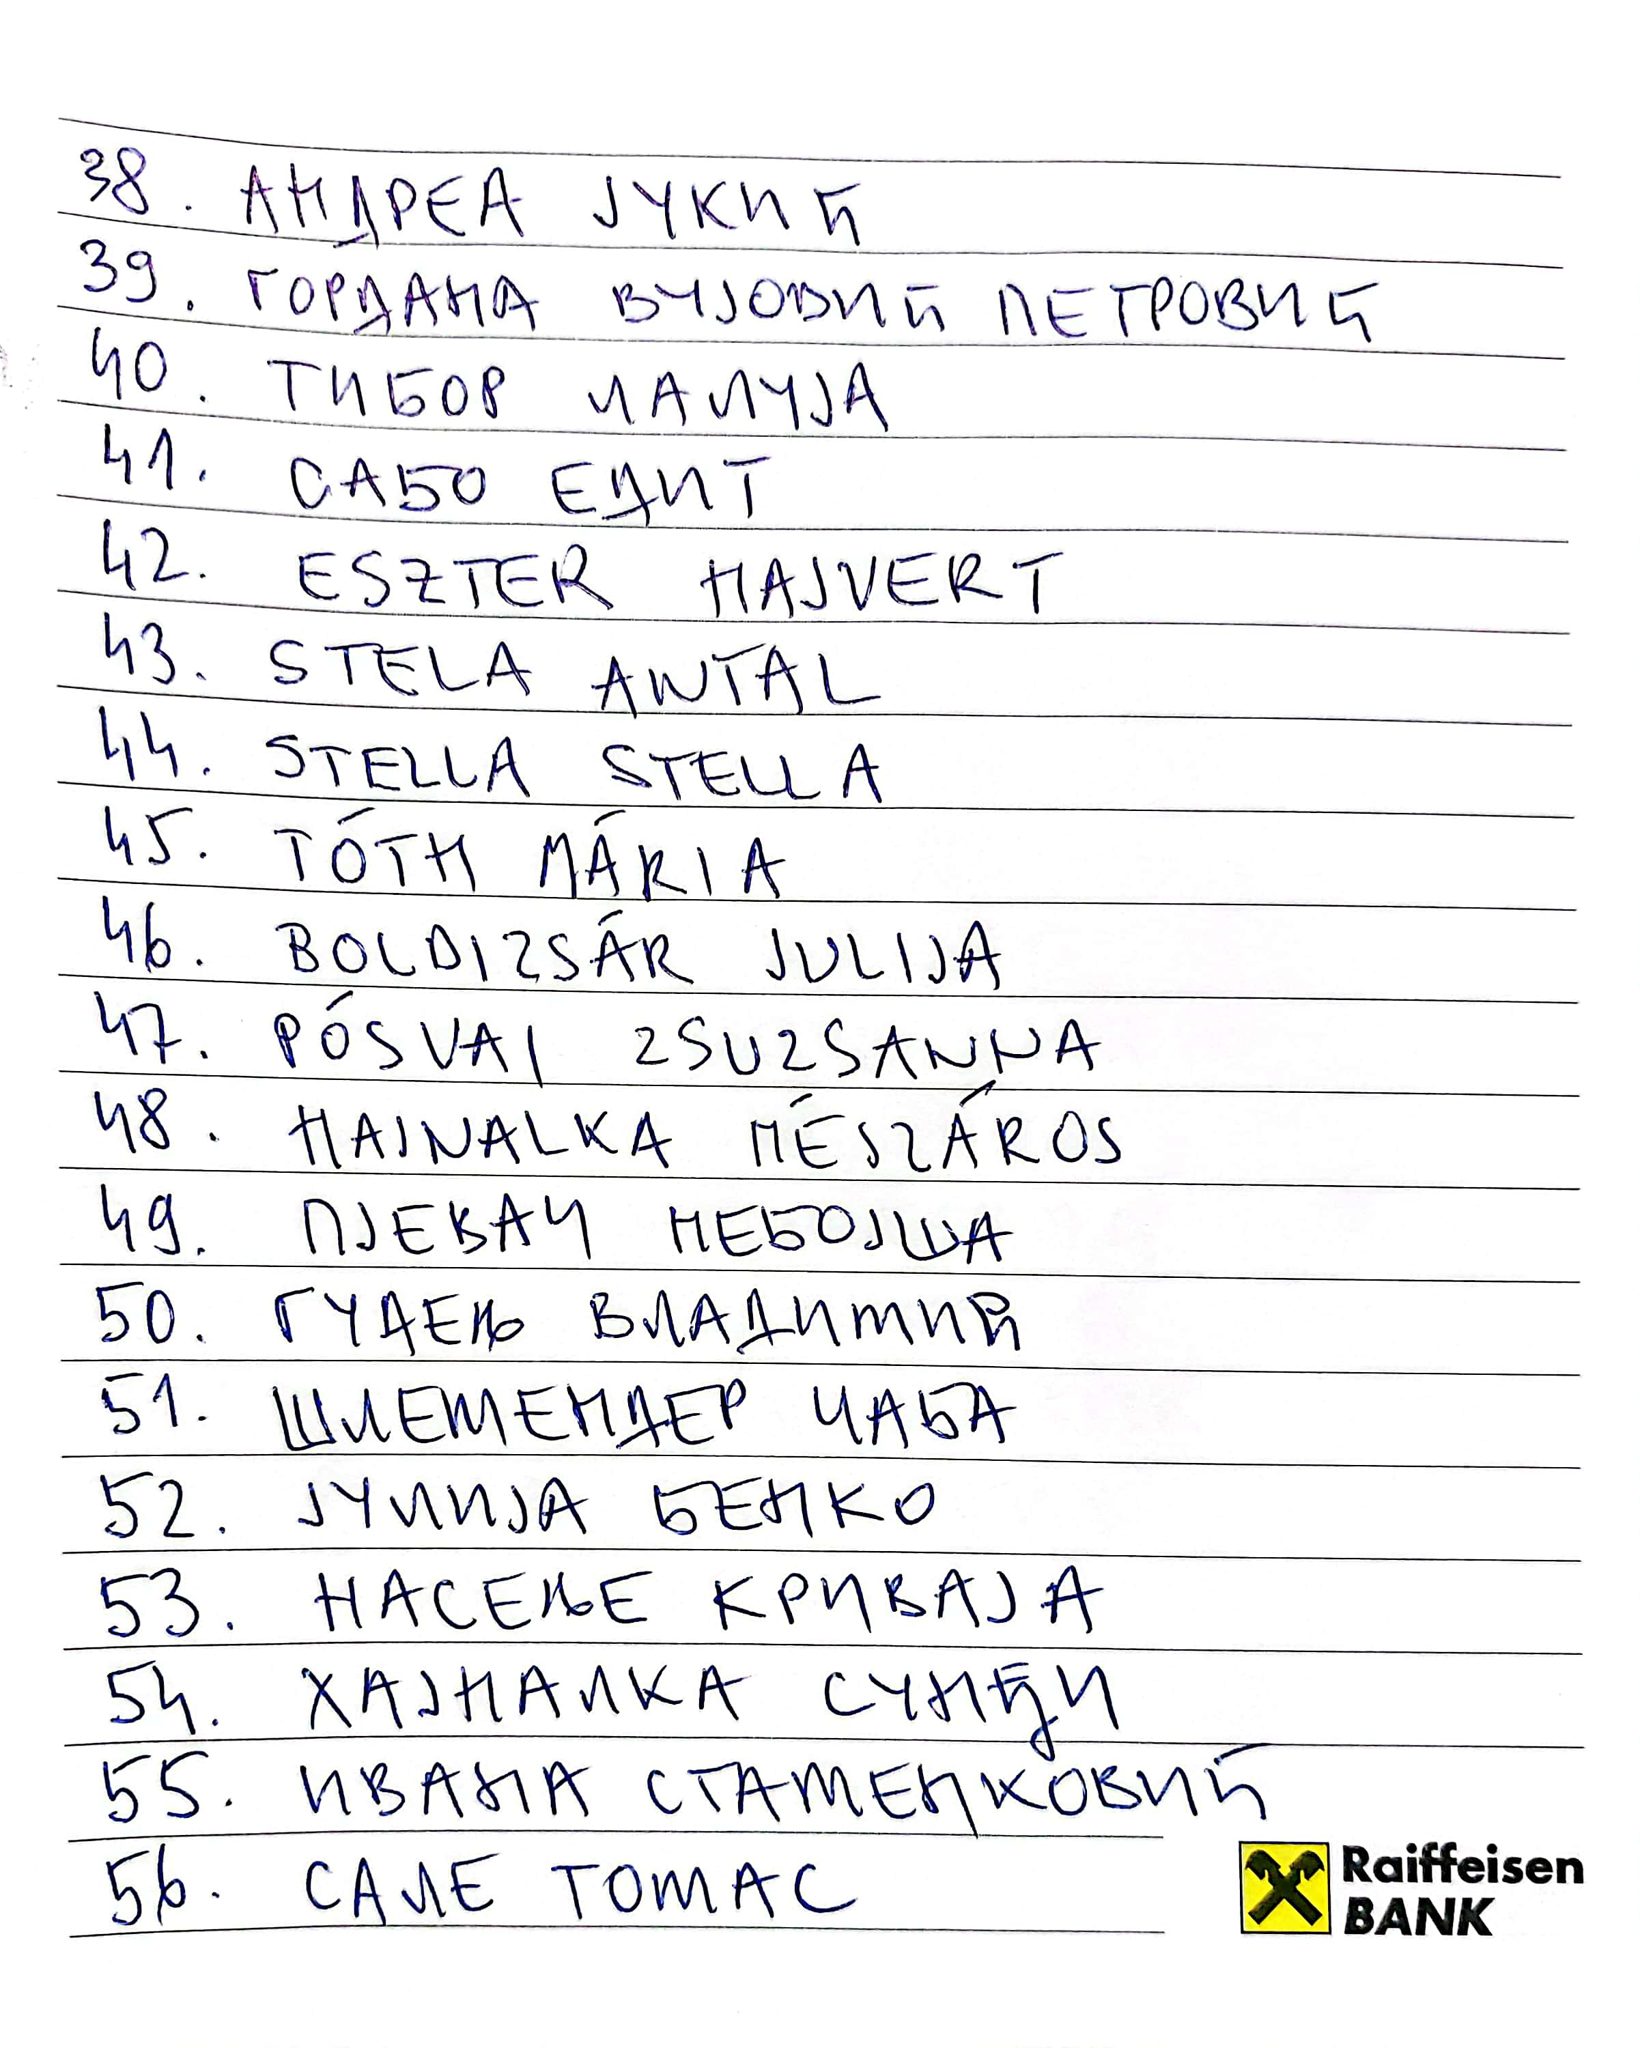 38. АНДРЕА ЈУКИЋ
39. ГОРДАНА ВУЈОВИЋ ПЕТРОВИЋ
40. ТИБОР ЛАЛУЈА
41. САБО ЕДИТ
42. ESZTER HAJVERT
43. STELA ANTAL
44. STELLA STELLA
45. TÓTH MÁRIA
46. BOLDIZSÁR JULIJA
47. PÓSVAI ZSUZSANNA
48. HAJNALKA MÉSZÁROS
49. ПЈЕВАЧ НЕБОЈША
50. ГУДЕЉ ВЛАДИМИР
51. ШЛЕМЕНДЕР ЧАБА
52. ЈУЛИЈА БЕНКО
53. НАСЕЉЕ КРИВАЈА
54. ХАЈНАЛКА СУНЂИ
55. ИВАНА СТАМЕНКОВИЋ
56. САЛЕ ТОМАС
Raiffeisen
BANK